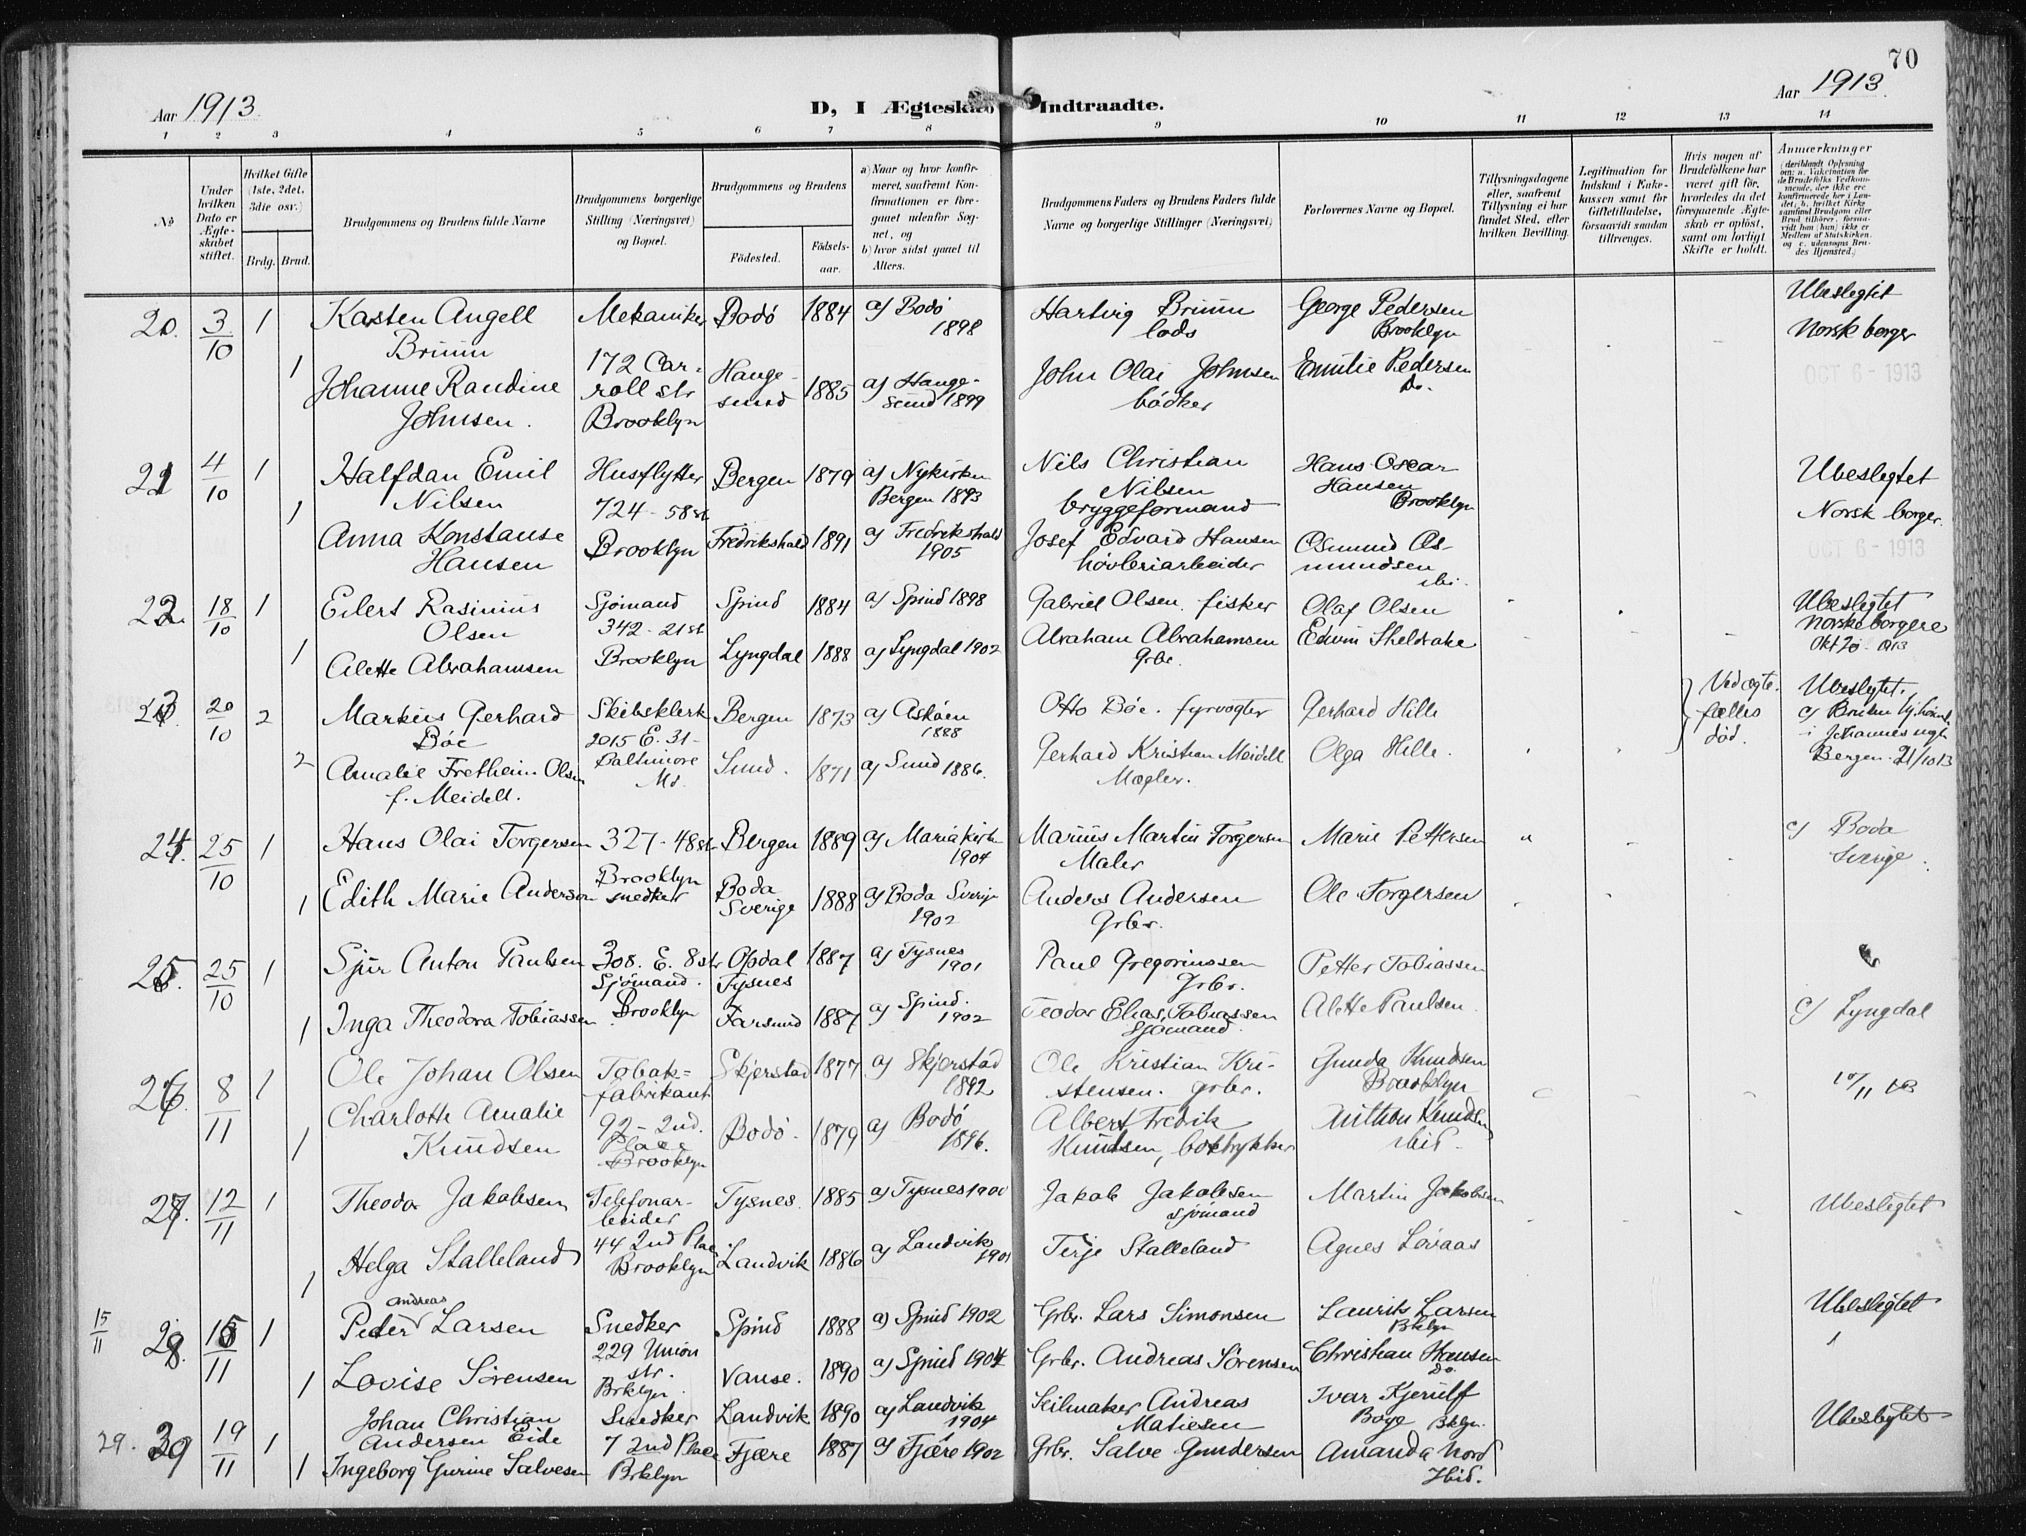 70
Aar 1913.
D, I Ægteskab Indtraadte.
Aar 1913.
1 2 3 4 5 6 7 8 9 10 11 12 13 14
No
Under hvilken Dato er Ægteskabet stiftet.
Hvilket Gifte (1ste, 2det, 3die osv.)
Brdg. Brud.
Brudgommens og Brudens fulde Navne
Brudgommens borgerlige Stilling (Næringsvei) og Bopæl.
Brudgommens og Brudens
Fødested. Fødselsaar.
a) Naar og hvor konfirmeret, saafremt Konfirmationen er foregaaet udenfor Sognet, og
b) hvor sidst gaaet til Alters.
Brudgommens Faders og Brudens Faders fulde Navne og borgerlige Stillinger (Næringsvei)
Forlovernes Navne og Bopæl.
Tillysningsdagene eller, saafremt Tillysning ei har fundet Sted, efter hvilken Bevilling.
Legitimation for Indskud i Enkekassen samt for Giftetilladelse, forsaavidt saadan tiltrænges.
Hvis nogen af Brudefolkene har været gift før, hvorledes da det foregaaende Ægteskab er opløst, samt om lovligt Skifte er holdt.
Anmærkninger
20. 3/10 1 Karsten Angell Bruun Mekaniker Bodö 1884 a) Bodö 1898 Hartvig Bruun lods George Pedersen Brooklyn Ubeslegtet Norsk borger
1 Johanne Randine Johnsen. 172 Carroll str Brooklyn Haugesund 1885 a) Haugesund 1899 John Olai Johnsen bödker Emilie Pedersen Do. OCT 6 - 1913
21 4/10 1 Halfdan Emil Nilsen Husflytter Bergen 1879 a) Nykirken Bergen 1893 Nils Christian Nilsen bryggeformand Hans Oscar Hansen Brooklyn Ubeslegtet
1 Anna Konstanse Hansen 724 - 58 st Brooklyn Fredrikshald 1891 a) Fredrikshald 1905 Josef Edvard Hansen hövleriarbeider Osmund Osmundsen ibi. Norsk borger. OCT 6 - 1913
22 18/10 1 Eilert Rasinius Olsen Sjömand Spind 1884 a) Spind 1898 Gabriel Olsen. fisker Olaf Olsen Ubeslegtet norske borgere
1 Alette Abrahamsen 342 - 21 st Brooklyn Lyngdal 1888 a) Lyngdal 1902 Abraham Abrahamsen Grbr. Edwin Sheldrake Okt 20 - 1913
23 20/10 2 Markus Gerhard Böe Skibsklerk Bergen 1873 a) Asköen 1888 Otto Böe. fyrvogter Gerhard Hille Ved ægtefælles död. Ubeslegtet.
2 Amalie Fretheim Olsen f. Meidell. 2015 E. 31 - Baltimore Md. Sund. 1871 a) Sund 1886. Gerhard Kristian Meidell Mægler. Olga Hille. i Johannes Bergen. 21/10 13
24. 25/10 1 Hans Olai Torgersen 327 - 48 st Bergen 1889 a) Mariakirk 1904 Marius Martin Torgersen Maler Marie Pettersen c) Boda Sverige.
1 Edith Marie Anderson Brooklyn snedker Boda Sverige 1888 a) Boda Sverige 1902 Anders Andersen Grbr. Ole Torgersen
25. 25/10 1 Sjur Anton Paulsen 308. E. 8 str Sjömand. Opdal Tysnes 1887 a) Tysnes 1901 Paul Gregoriussen Grbr. Petter Tobiassen
1 Inga Theodora Tobiassen Brooklyn Farsund 1887 a) Spind. 1902 Teodor Elias Tobiassen Sjömand. Alette Paulsen. c) Lyngdal
26. 8/11 1 Ole Johan Olsen Tobakfabrikant Skjerstad 1877 a) Skjerstad 1892 Ole Kristian Kristensen. grbr. Gunda Knudsen Brooklyn 10/11 13
1 Charlotte Amalie Knudsen 92 - 2nd. Place Brooklyn Bodö. 1879 a) Bodö 1896. Albert Fredrik Knudsen, boktrykker Anthon Knudsen ibid.
27. 12/11 1 Theodor Jakobsen Telefonarbeider Tysnes. 1885 a) Tysnes 1900 Jakob Jakobsen sjömand Martin Jakobsen Ubeslegtet
1 Helga Stalleland 44 2nd Place Brooklyn Landvik 1886 a) Landvik 1901 Terje Stalleland Agnes Lövaas
15/11 28. 15/11 1 Peder Andreas Larsen Snedker Spind 1888 a) Spind 1902 Grbr. Lars Simonsen Laurits Larsen Bklyn Ubeslegtet
1 Lovise Sörensen 229 Union str. Brklyn. Vanse. 1890 a) Spind 1904 Grbr. Andreas Sörensen Christian Hansen Do.
29. 19/11 1 Johan Christian Andersen Eide Snedker Landvik 1890 a) Landvik 1904 Seilmaker Andreas Matiesen Ivar Kjerulf Boye Bklyn. Ubeslegtet
1 Ingeborg Gurine Salvesen 7 2nd Place Brklyn Fjære 1887 a) Fjære 1902 Grbr. Salve Gundersen Amanda Nord Ibid.